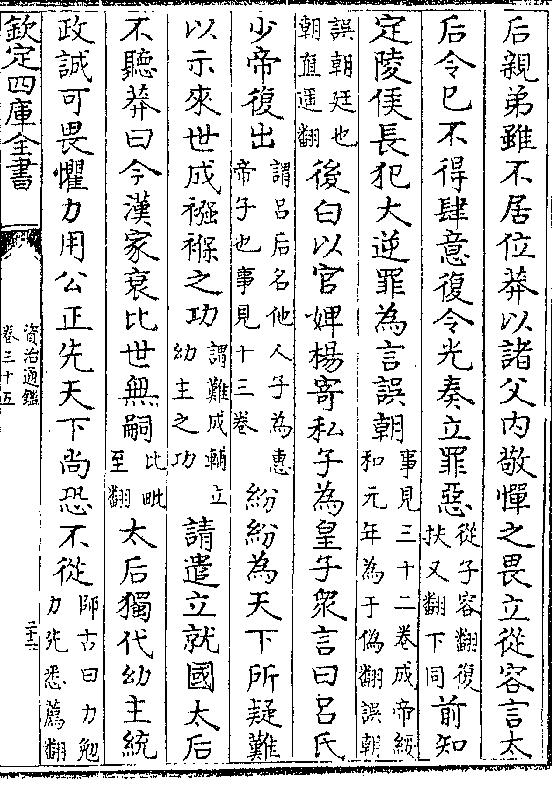 后親弟雖不居位莽以諸父内敬憚之畏立從容言太
后令已不得肆意復令光奏立罪惡從子容翻復扶又翻下同前知
定陵侯長犯大逆罪為言誤朝事見三十二卷成帝綏和元年為于偽翻誤朝
誤朝廷也朝直遥翻後白以官婢楊寄私子為皇子衆言曰吕氏
少帝復出謂吕后名他人子為惠帝子也事見十三卷紛紛為天下所疑難
以示來世成襁褓之功謂難成輔立幼主之功請遣立就國太后
不聽莽曰今漢家衰比世無嗣比毗至翻太后獨代幼主統
政誠可畏懼力用公正先天下尚恐不從師古曰力勉力先悉薦翻
欽定四庫全書
資治通鑑
卷三十五